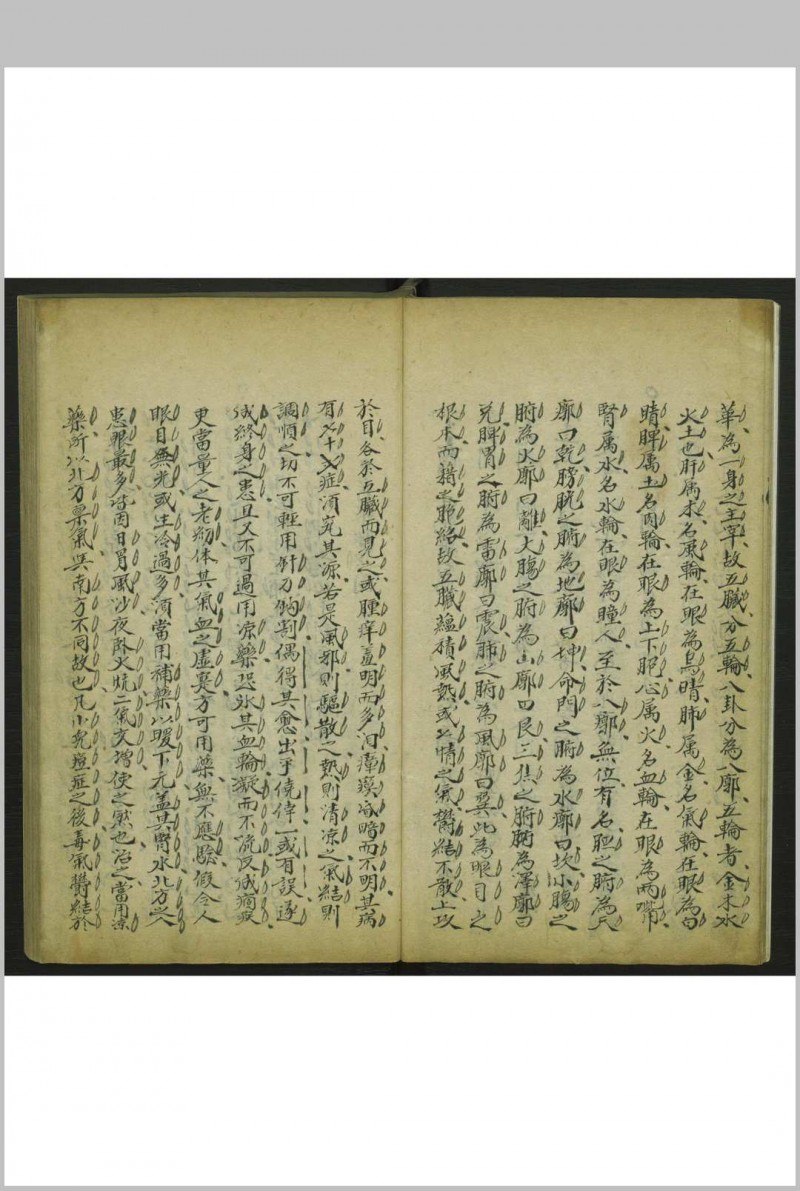 華為一身之主宰故五臟分五輪八卦分為八廓五輪者金木水
火土也肝屬木名風輪在眼為烏睛肺屬金名氣輪在眼為白
睛脾屬土名肉輪在眼為上下胞心屬火名血輪在眼為两嘴
腎屬水名水輪在眼為瞳人至於八廓無位有名胆之腑為天
廓曰乾膀胱之腑為地廓曰坤命門之腑為水廓曰坎小腸之
腑為火廓曰離大腸之腑為山廓曰艮三焦之腑為澤廓曰
兌脾胃之腑為雷廓曰震肺之腑為風廓曰巽此為眼目之
根本而藉之脉絡故五臟蘊積風熱或七情之氣鬱結不散上攻
於目各於五臟而見之或腫痒羞明而多泪瘴瘼昏暗而不明其病
有七十二症須究其源若是風邪則驅散之熱則清凉之氣結則
調順之切不可輕用針刀鈎割偶得其愈出乎僥倖一或有誤遂
成終身之患且又不可過用凉藥恐氷其血輪凝而不流反成痼疾
更當量人之老幼体其氣血之虛寔方可用藥無不應驗假令人
眼目無光或生冷過多須當用補藥以暖下元益其腎水北方之人
患眼最多皆因日冒風沙夜卧火炕二氣交增使之然也治之當用凉
藥所以北方禀氣與南方不同故也凡小兒痘症之後毒氣鬱結於